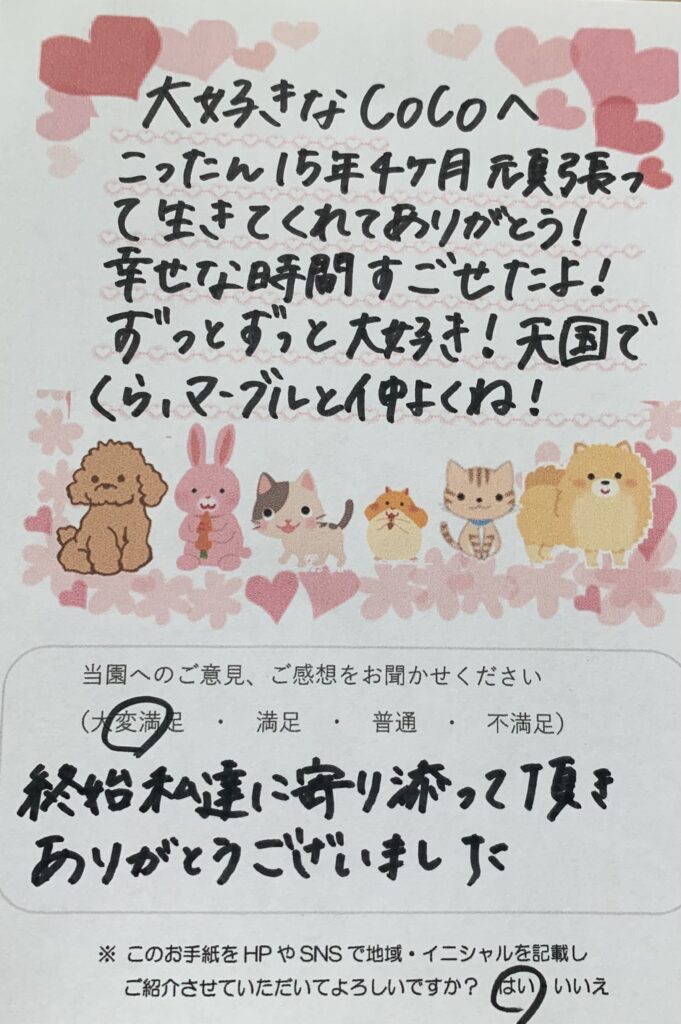 大好きなCoCoへ
こったん15年4ヶ月頑張っ
て生きてくれてありがとう!
幸せな時間すごせたよ!
ずっとずっと大好き!天国で
くら、マーブルと仲よくね!
当園へのご意見、ご感想をお聞かせください
(大変満足 ・ 満足 ・ 普通 ・ 不満足)
終始私達に寄り添って頂き
ありがとうございました
※ このお手紙をHPやSNSで地域・イニシャルを記載し
ご紹介させていただいてよろしいですか? はい・いいえ